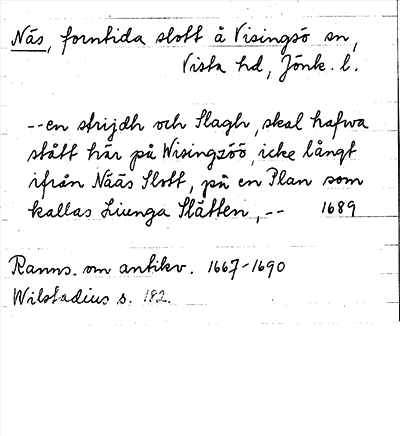 Näs, forntida slott å Visingsö sn,
Vista hd, Jönk. l.
--en strijdh och Slagh, skal hafwa
stått här på Wisingzöö, icke långt
ifrån Nääs Slott, på en Plan som
kallas Liunga Slätten, -- 1689
Ranns. om antikv. 1667-1690
Wilstadius s. 182.